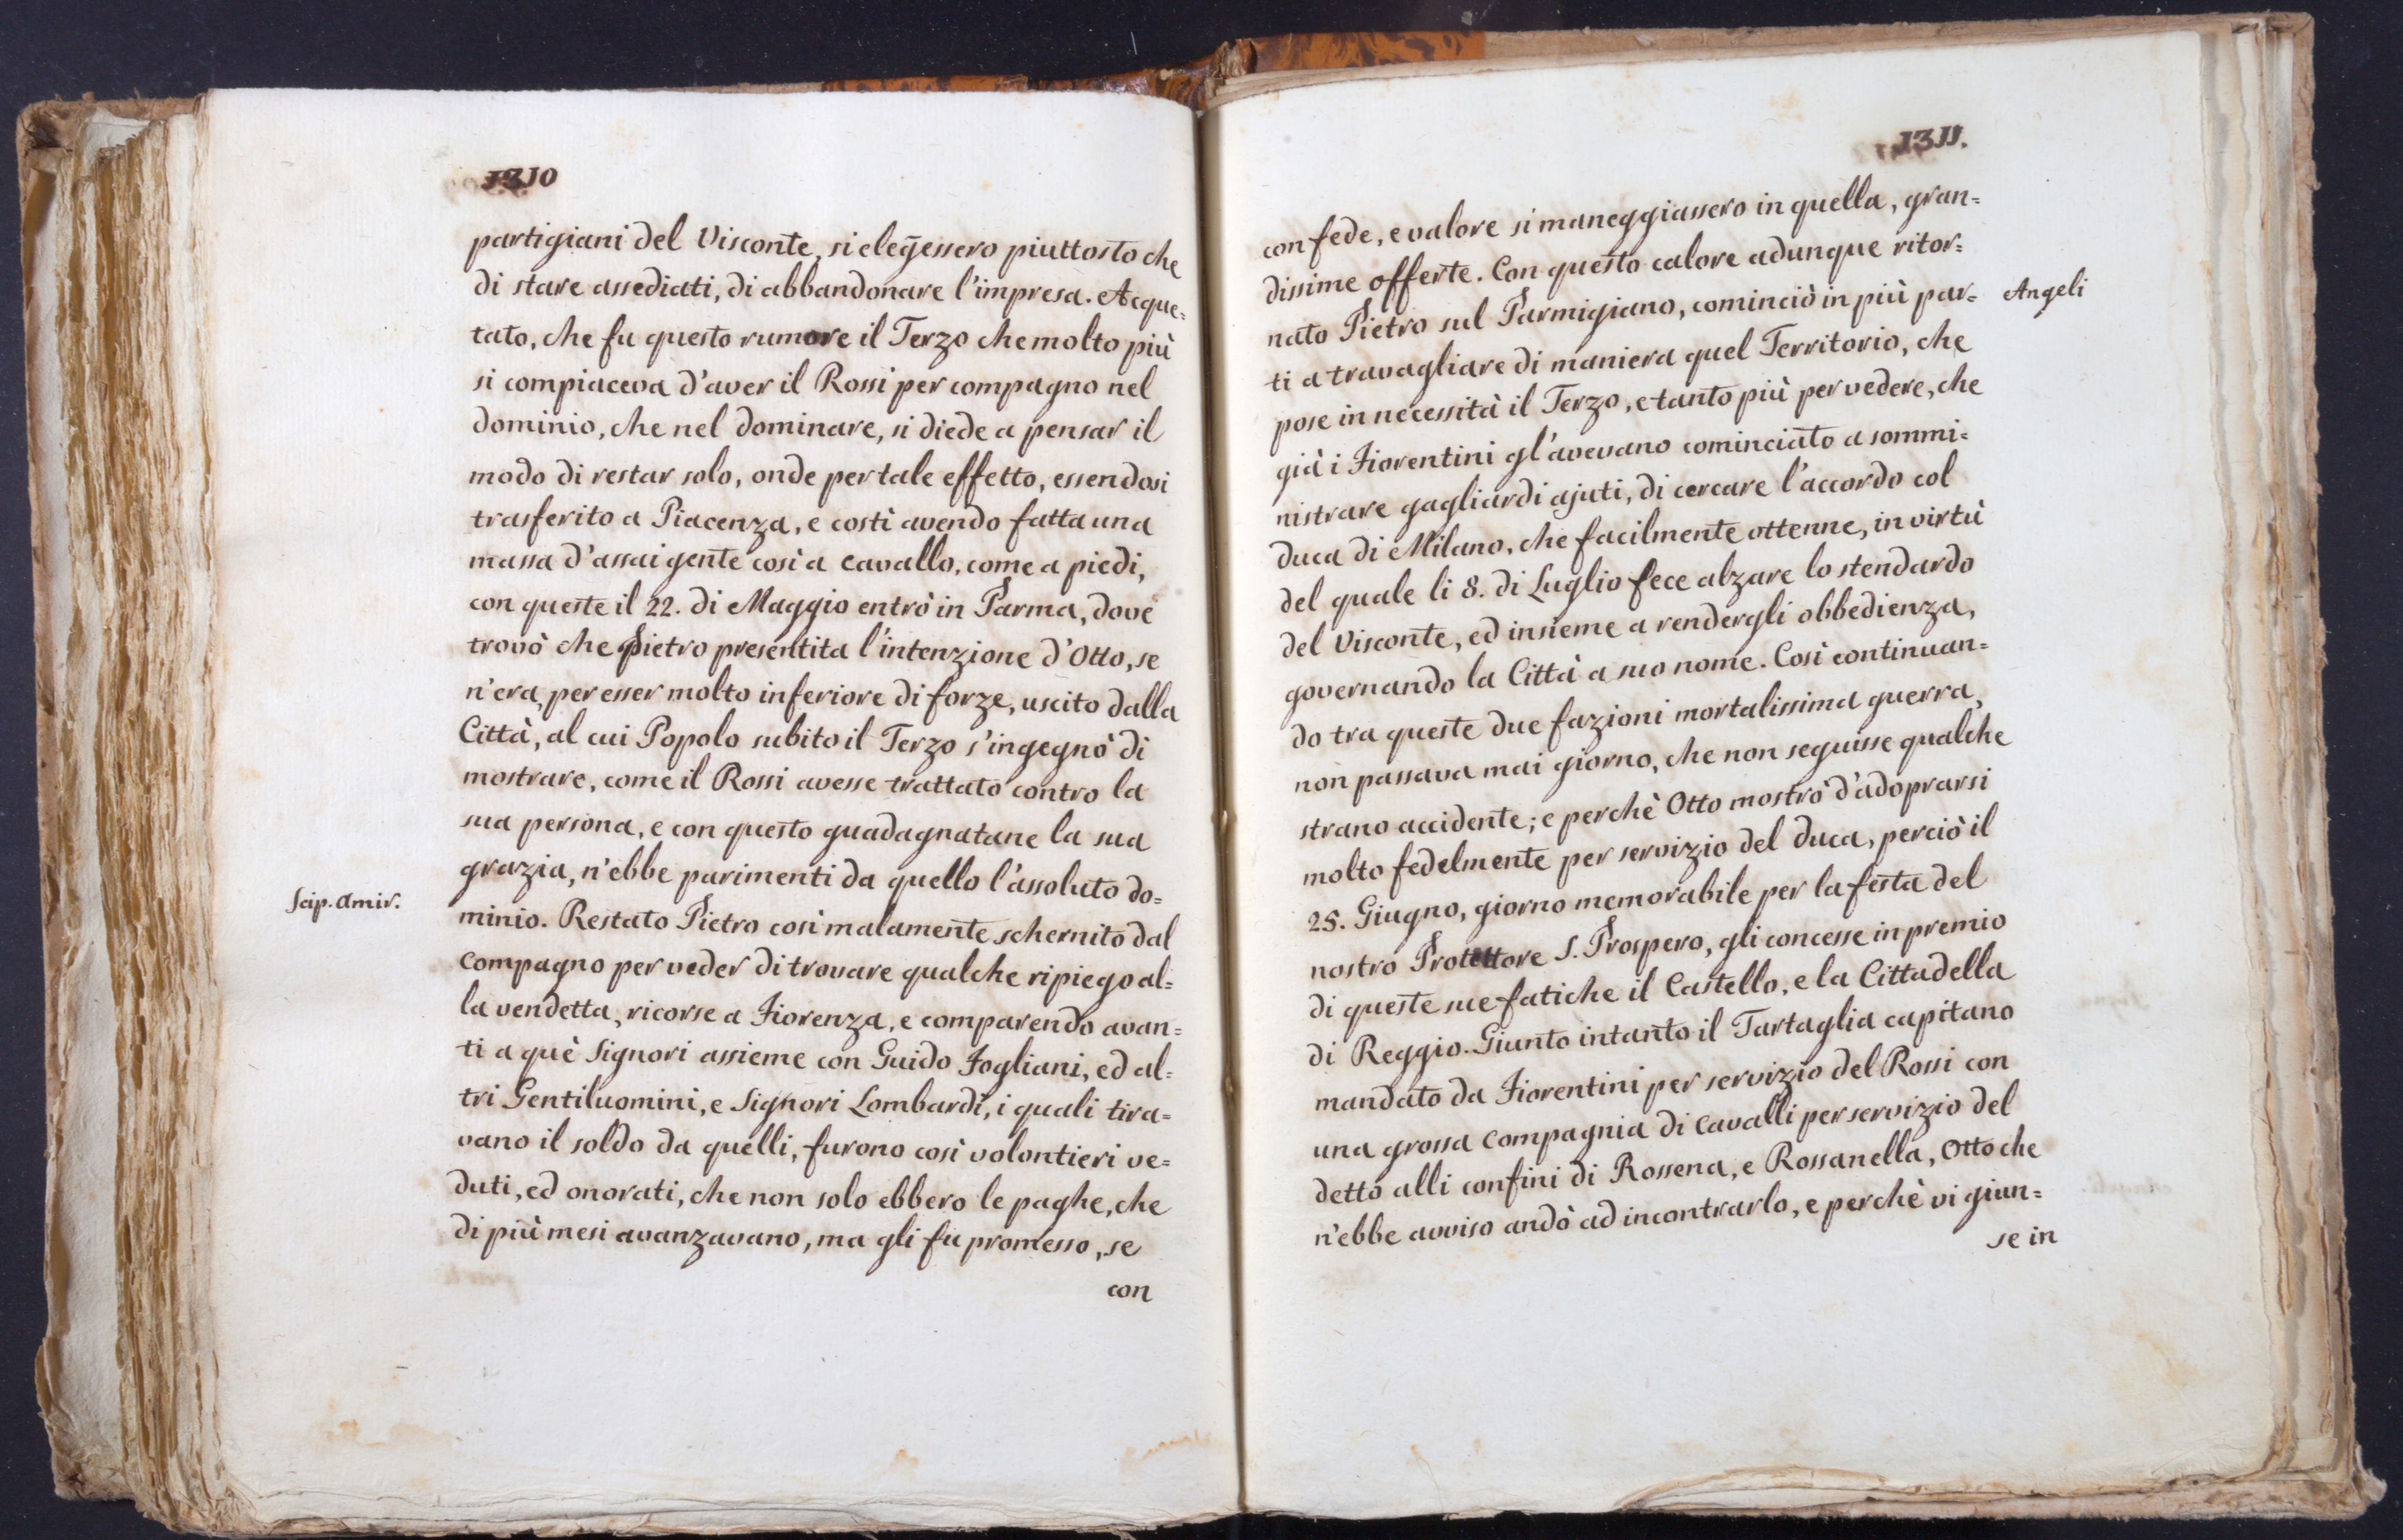 1310
partigiani del Visconte, si elegessero piuttosto che
di stare assediati, di abbandonare l'impresa. Acque=
tato, che fu questo rumore il Terzo che molto più
si compiaceva d'aver il Rossi per compagno nel
dominio, che nel dominare, si diede a pensar il
modo di restar solo, onde per tale effetto, essendosi
trasferito a Piacenza, e costì avendo fatta una
massa d'assai gente così a cavallo, come a piedi,
con queste il 22. di Maggio entrò in Parma, dove
trovò che Pietro presentita l'intenzione d'Otto, se
n'era, per esser molto inferiore di forze, uscito dalla
Città, al cui Popolo subito il Terzo s'ingegnò di
mostrare, come il Rossi avesse trattato contro la
sua persona, e con questo guadagnatane la sua
grazia, n'ebbe parimenti da quello l'assoluto do=
Scip. Amir.
minio. Restato Pietro così malamente schernito dal
compagno per veder di trovare qualche ripiego al=
la vendetta, ricorse a Fiorenza, e comparendo avan=
ti a què Signori assieme con Guido Fogliani, ed al=
tri Gentiluomini, e Signori Lombardi, i quali tira=
vano il soldo da quelli, furono così volontieri ve=
duti, ed onorati, che non solo ebbero le paghe, che
di più mesi avanzavano, ma gli fu promesso, se
con
1311.
con fede, e valore si maneggiassero in quella, gran=
dissime offerte. Con questo calore adunque ritor=
nato Pietro sul Parmigiano, cominciò in più par=
Angeli
ti a travagliare di maniera quel Territorio, che
pose in necessità il Terzo, e tanto più per vedere, che
già i Fiorentini gl'avevano cominciato a sommi=
nistrare gagliardi ajuti, di cercare l'accordo col
duca di Milano, che facilmente ottenne, in virtù
del quale li 8. di Luglio fece alzare lo stendardo
del Visconte, ed insieme a rendergli obbedienza,
governando la Città a suo nome. Così continuan=
do tra queste due fazioni mortalissima guerra,
non passava mai giorno, che non seguisse qualche
strano accidente; e perchè Otto mostrò d'adoprarsi
molto fedelmente per servizio del duca, perciò il
25. Giugno, giorno memorabile per la festa del
nostro Protettore S. Prospero, gli concesse in premio
di queste sue fatiche il Castello, e la Cittadella
di Reggio. Giunto intanto il Tartaglia capitano
mandato da Fiorentini per servizio del Rossi con
una grossa compagnia di cavalli per servizio del
detto alli confini di Rossena, e Rossanella, Otto che
n'ebbe avviso andò ad incontrarlo, e perchè vi giun=
se in